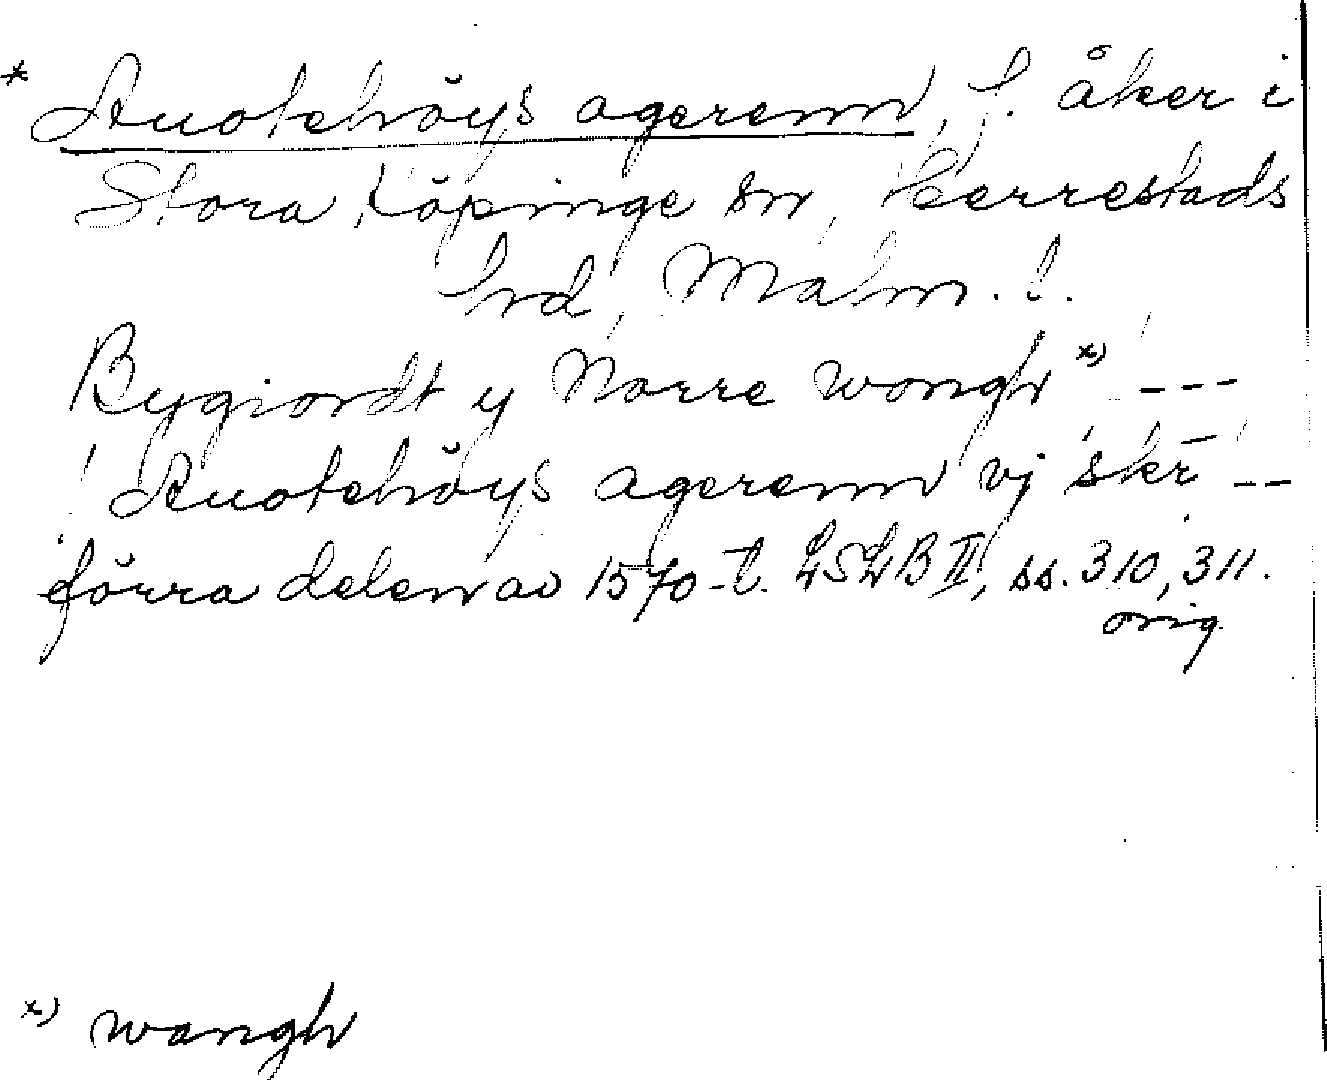 * Knotehöys agerenn, f. åker i
Stora Köpinge sn, Herrestads
hrd, Malm. l.
Bygiordt y Norre wongh x) ---
! Knotehöys agerenn vj skr̄ --
förra delen av 1570-t. LSLB II, ss. 310, 311.
orig.
x) wangh